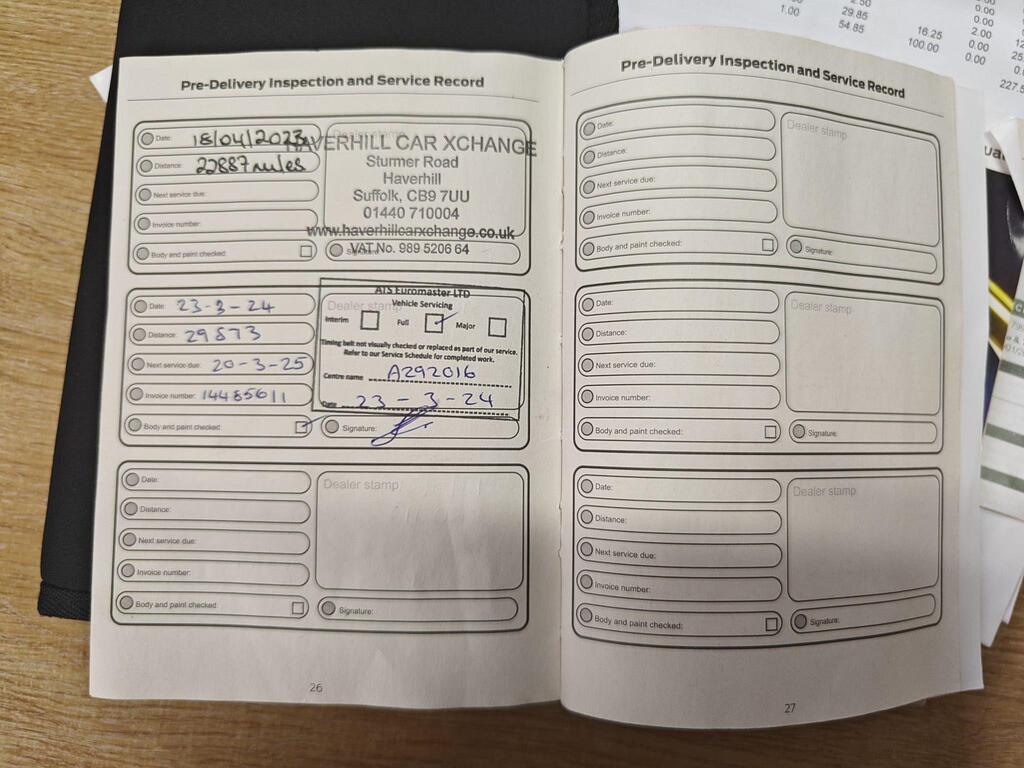 Pre-Delivery Inspection and Service Record
Date: 18/04/2023
Distance: 22887 miles
Next service due:
Invoice number:
Body and paint checked:
Dealer stamp
HAVERHILL CAR XCHANGE
Sturmer Road
Haverhill
Suffolk, CB9 7UU
01440 710004
www.haverhillcarxchange.co.uk
VAT No. 989 5206 64
Signature:
Date: 23-3-24
Distance: 29873
Next service due: 20-3-25
Invoice number: 14485611
Body and paint checked:
Dealer stamp
ATS Euromaster LTD
Vehicle Servicing
Interim Full Major
Timing belt not visually checked or replaced as part of our service.
Refer to our Service Schedule for completed work.
Centre name A292016
Date 23-3-24
Signature:
Date:
Distance:
Next service due:
Invoice number:
Body and paint checked:
Dealer stamp
Signature:
26
Pre-Delivery Inspection and Service Record
Date:
Distance:
Next service due:
Invoice number:
Body and paint checked:
Dealer stamp
Signature:
Date:
Distance:
Next service due:
Invoice number:
Body and paint checked:
Dealer stamp
Signature:
Date:
Distance:
Next service due:
Invoice number:
Body and paint checked:
Dealer stamp
Signature:
27
1.00
29.85
54.85
16.25
100.00
0.00
0.00
2.00
0.00
0.00